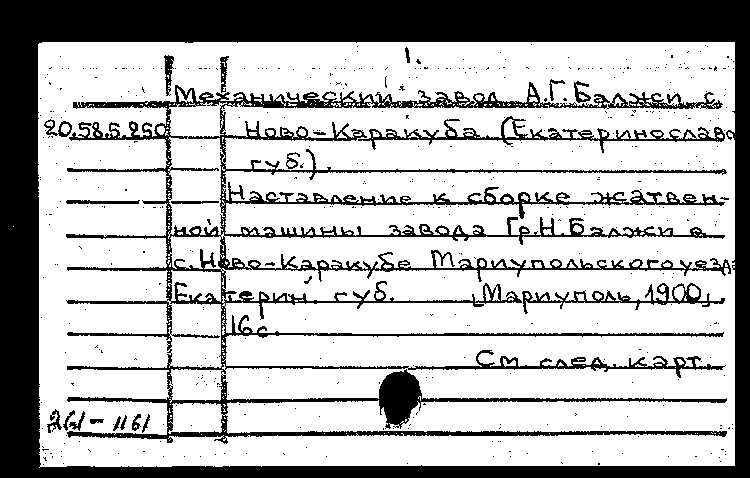 1.
Механический завод А.Г. Балжи с.
20.58.5.250 Ново-Каракуба (Екатеринослав
губ.).
Наставление к сборке жатвен-
ной машины завода Гр.Н. Балжи в
с. Ново-Каракубе Мариупольского уезда
Екатерин. губ. [Мариуполь, 1900].
16 с.
См. след. карт.
261-1161